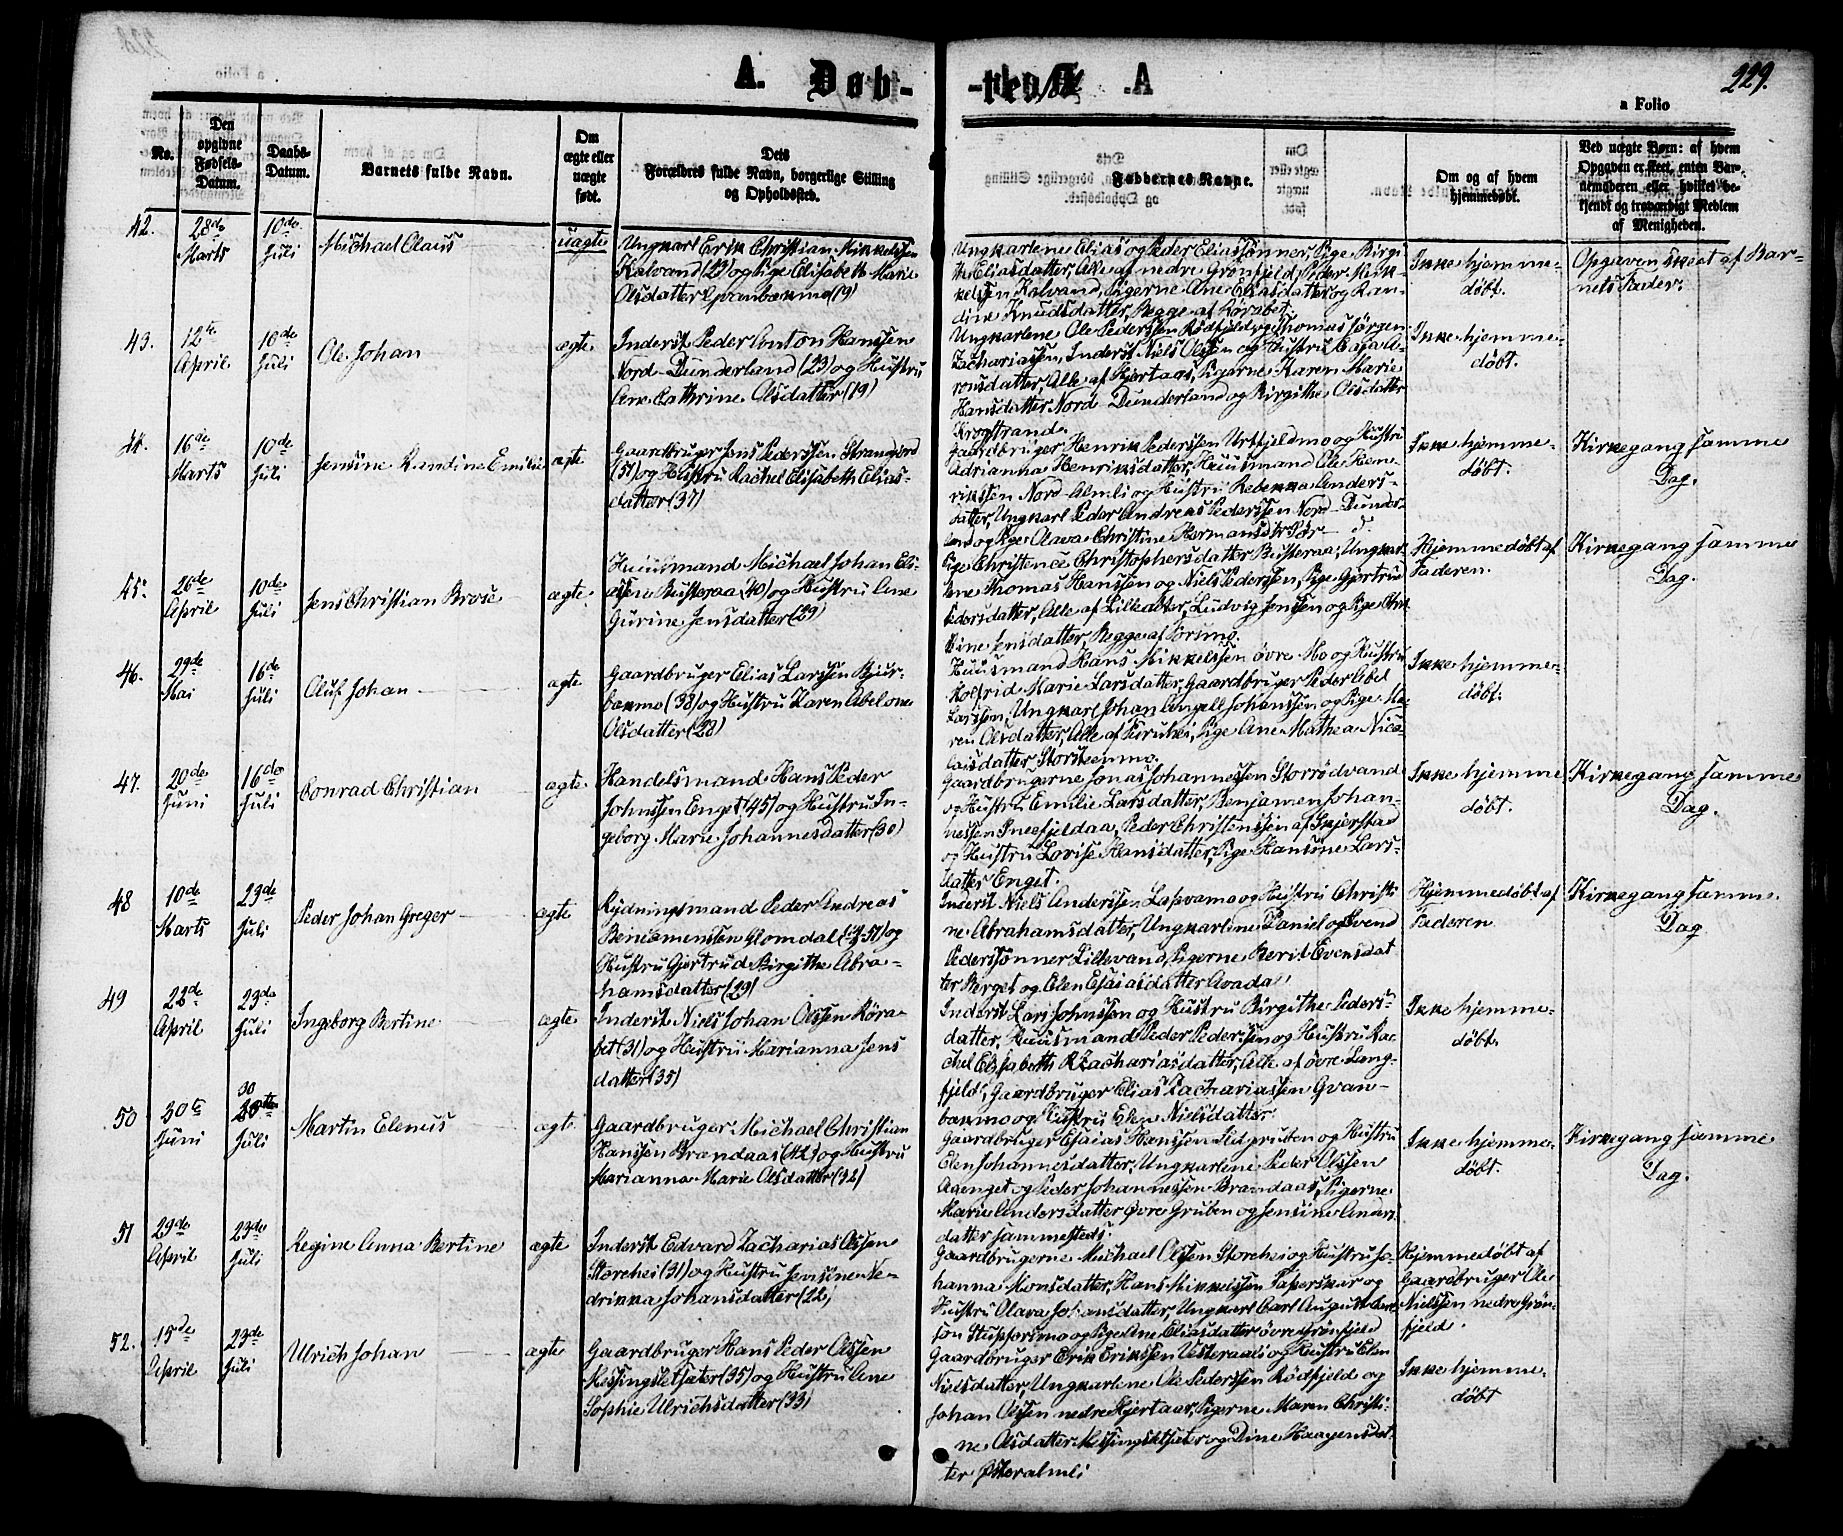 229.
A. Døb-
-te. A
a Folio
No.
Den opgivne Fødsels-Datum.
Daabs-Datum.
Barnets fulde Navn.
Om ægte eller uægte født.
Dets Forældres fulde Navn, borgerlige Stilling og Opholdssted.
Faddernes Navne.
Om og af hvem hjemmedøbt.
Ved uægte Børn: af hvem Opgaven er skeet, enten Barnemoderen eller hvilket bekjendt og troværdigt Medlem af Menigheden.
42.
28de Marts
10de Juli
Michael Olaus
uægte
Ungkarl Erik Christian Mikkelssen
Kalvand (23) og Pige Elisabeth Marie
Olsdatter Gvanbækmo (19)
Ungkarlene Elias og Peder Eliassønner, Pige Birgi
th Eliasdatter, Alle af nedre Grønfjeld, Peder Mik-
kelssen Kalvand, Pigerne Ane Eliasdatter og Ran-
dine Knudsdatter, Begge af Rørabet.
Ikke hjemme-
døbt.
Opgaven skeet af Bar-
nets Fader.
43.
12te April
10de Juli
Ole Johan
ægte
Inderst Peder Anton Hanssen
Nord-Dunderland (23) og Hustru
Ane Cathrine Olsdatter (19)
Ungkarlene Ole Pederssen Rødfjeld og Thomas Jørgen
Zachariassen, Inderst Niels Olssen og Hustru Sara A-
ronsdatter, Alle af Hjertaas, Pigerne Karen Marie
Hansdatter Nord-Dunderland og Birgithe Olsdatter
Krogstrand.
Ikke hjemme-
døbt.
44.
16de Marts
10de Juli
Jensine Randine Emilie
ægte
Gaardbruger Jens Pederssen Strandjord
(51) og Hustru Rachel Elisabeth Elias-
datter (37)
Gaardbruger Henrik Pederssen Urtfjeldmo og Hustru
Adrianna Henriksdatter, Huusmand Ole Hen-
rikssen Nord-Almli og Hustru Rebekka Anders-
datter, Ungkarl Peder Andreas Pederssen Nord-Dunder-
land og Pige Olava Christine Hermansdtr
Ikke hjemme-
døbt.
Kirkegang samme
Dag.
45.
26de April
10de Juli
Jens Christian Brose
ægte
Huusmand Michael Johan Eli-
assen Busteraa (40) og Hustru Ane
Gurine Jensdatter (29)
Pige Christence Christophersdatter Busteraa, Ungkar-
lene Thomas Hanssen og Niels Pederssen, Pige Gjertrud
Pedersdatter, Alle af Lillealter, Ludvig Jenssen og Pige
Jensdatter, Begge af Tørsmo.
Hjemmedøbt af
Faderen.
Kirkegang samme
Dag.
46.
29de Mai
16de Juli
Oluf Johan
ægte
Gaardbruger Elias Larssen Bjur-
bækmo (38) og Hustru Karen Abelone
Olsdatter (28)
Huusmand Hans Mikkelssen øvre Mo og Hustru
Marie Larsdatter, Gaardbruger Peder Abel
Larssen, Ungkarl Johan Angell Johanssen og Pige Ma-
ren Olsdatter, Alle af Furuhei, Pige Ane Mathea Nico-
laisdatter Storsteenmo.
Ikke hjemme-
døbt.
47.
20de Juni
16de Juli
Conrad Christian
ægte
Handelsmand Hans Peder
Johnssen Enget (45) og Hustru In-
geborg Marie Johannesdatter (30)
Gaardbrugerne Jonas Johannessen Storrødvand
og Hustru Emilie Larsdatter, Benjamen Johan-
nessen Sneefjeldaa, Peder Christenssen af Skjerstad
og Hustru Lovise Hansdatter, Pige Hansine Lars-
datter Enget.
Ikke hjemme
døbt.
Kirkegang samme
Dag.
48
10de Marts
23de Juli
Peder Johan Greger
ægte
Rydningsmand Peder Andreas
Glomdal og
Hustru Gjertrud Birgithe Abra-
hamsdatter (29)
Inderst Niels Anderssen og Hustru Christi
ne Abrahamsdatter, Ungkarlene Daniel og Svend
Pederssønner Lillevand, Pigerne Berit Evensdat
ter Berget og Elen Esaiasdatter Avada
Hjemmedøbt af
Faderen
Kirkegang samme
Dag
49
22de April
23de Juli
Ingeborg Bertine
ægte
Inderst Niels Johan Olssen Røra-
bet (31) og Hustru Marianna Jens
datter (35)
Inderst Lars Johnssen og Hustru Birgithe Peders-
datter, Huusmand Peder Pederssen og Hustru Ra-
chel Elisabeth Zachariasdatter, Alle af øvre Lang-
fjeld, Gaardbruger Elias Zachariassen Gvan-
bækmo og Hustru Elen Nielsdatter
Ikke hjemme-
døbt.
50
30te Juni
30 Juli
Martin Elenus
ægte
Gaardbruger Michael Christian
Hanssen Brændaas (42) og Hustru
Marianna Marie Olsdatter (32)
Gaardbruger Esaias Hanssen Stigruben og Hustru
Elen Johannesdatter, Ungkarlene Peder Olssen
Aaenget og Peder Johannessen Brændaas, Pigerne
Marie Andersdatter Øvre Gruben og Jensine Anders
datter sammesteds.
Ikke hjemme-
døbt.
Kirkegang samme
Dag.
51
29de April
23de Juli
Regine Anna Bertine
ægte
Inderst Edvard Zacharias Olssen
Storehei (31) og Hustru Jensine
Johansdatter (22)
Gaardbrugerne Michael Olssen Storehei og Hustru Jo-
hanna Monsdatter, Hans Mikkelssen og
Hustru Olava Johansdatter, Ungkarl Carl August
Stupforsmo og Pige Ane Eliasdatter øvre Grønfjeld
Hjemmedøbt af
Gaardbruger Ole
Nielssen nedre Grøn-
fjeld.
52.
15de April
23de Juli
Ulrich Johan
ægte
Gaardbruger Hans Peder Olssen
Messingsletsæter (35) og Hustru Ane
Sophie Ulrichsdatter (33)
Gaardbruger Erik Erikssen Vesteraali og Hustru Elen
Nielsdatter, Ungkarlene Ole Pederssen Rødfjeld og
Johan Olssen nedre Hjertaas, Pigerne Maren Christi-
ne Olsdatter Messingsletsæter og Dine Haagensdat
ter Østeralmli
Ikke hjemme-
døbt